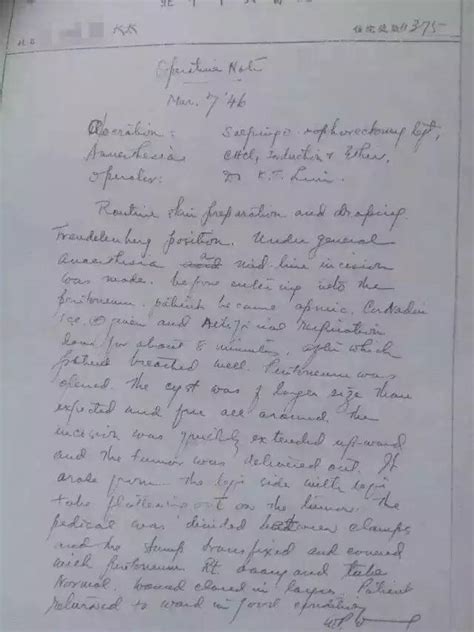 太太
4375
Operative Note
Mar. 7 '46
Operation: Salpingo-oophorectomy left,
Anaesthesia CHCl3 Induction & Ether.
Operator: Dr K.T.
Routine skin preparation and draping.
Trendelenberg position. Under general
anaesthesia a mid-line incision
was made. Before entering into the
peritoneum, patient became apneic.
1cc. given and Artificial Respiration
done for about 8 minutes, after which
patient breathed well. Peritoneum was
opened. The cyst was of larger size than
expected and free all around. The
incision was quickly extended upward
and the tumor was delivered out. It
arose from the left side with left
tube flattening out on the tumor. The
pedical was divided between clamps
and the stump transfixed and covered
with Peritoneum Rt. ovary and tube
Normal. Wound closed in layers. Patient
returned to ward in good condition